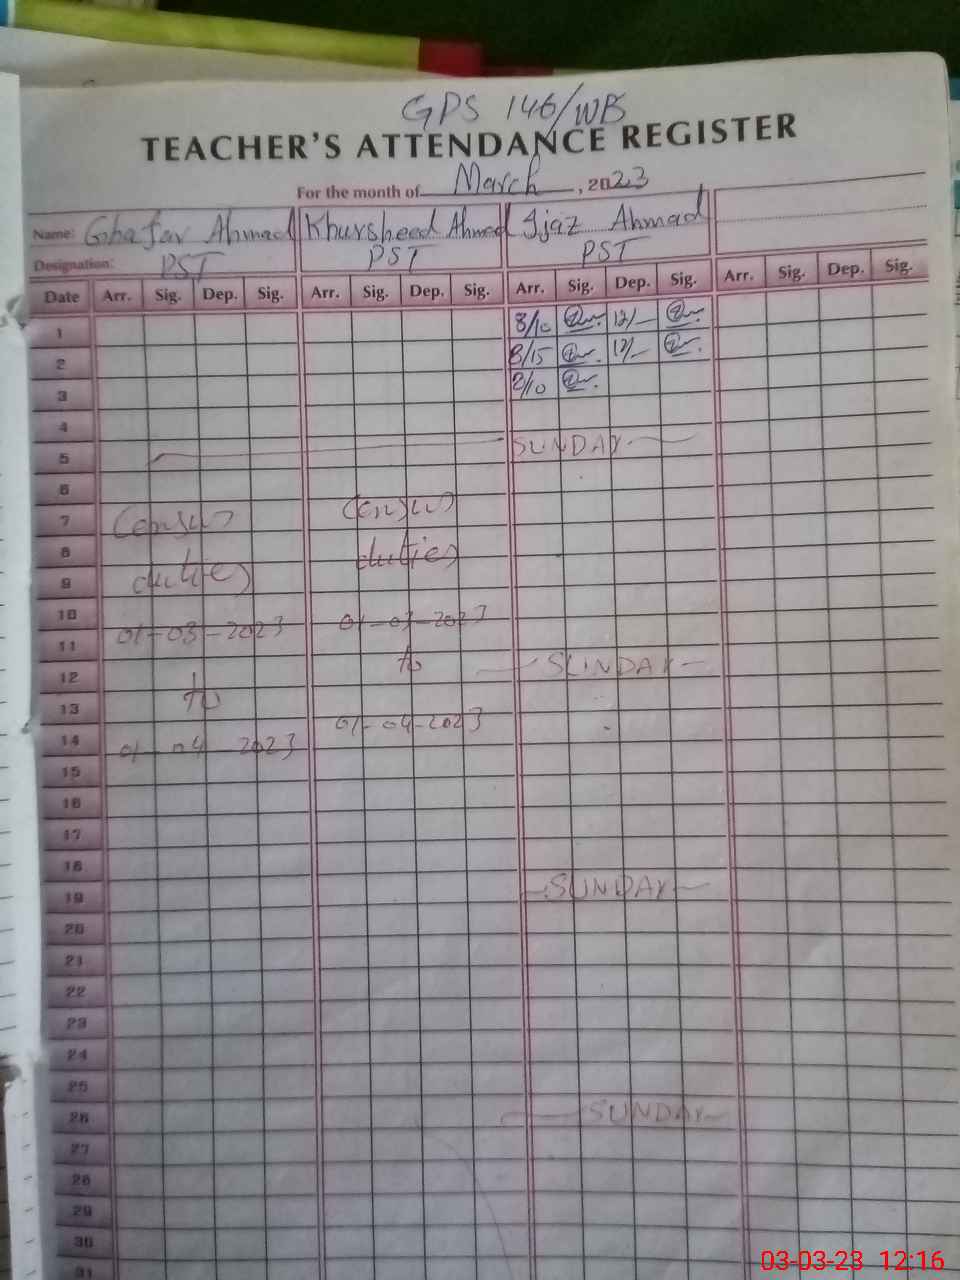 GPS 146/WB
TEACHER'S ATTENDANCE REGISTER
For the month of March, 2023
Name: Ghafar Ahmad Khursheed Ahmed Ijaz Ahmad
Designation: PST PST PST
Date Arr. Sig. Dep. Sig. Arr. Sig. Dep. Sig. Arr. Sig. Dep. Sig. Arr. Sig. Dep. Sig.
1 8/10 12/-
2 8/15 12/-
3 8/10
4
5 SUNDAY
6
7 Census Census
8 duties
9 duties
10 01-03-2023
11 01-03-2023
12 to SUNDAY
13 to
14 01-04-2023 01-04-2023
15
16
17
18
19 SUNDAY
20
21
22
23
24
25
26 SUNDAY
27
28
29
30
31
03-03-23 12:16